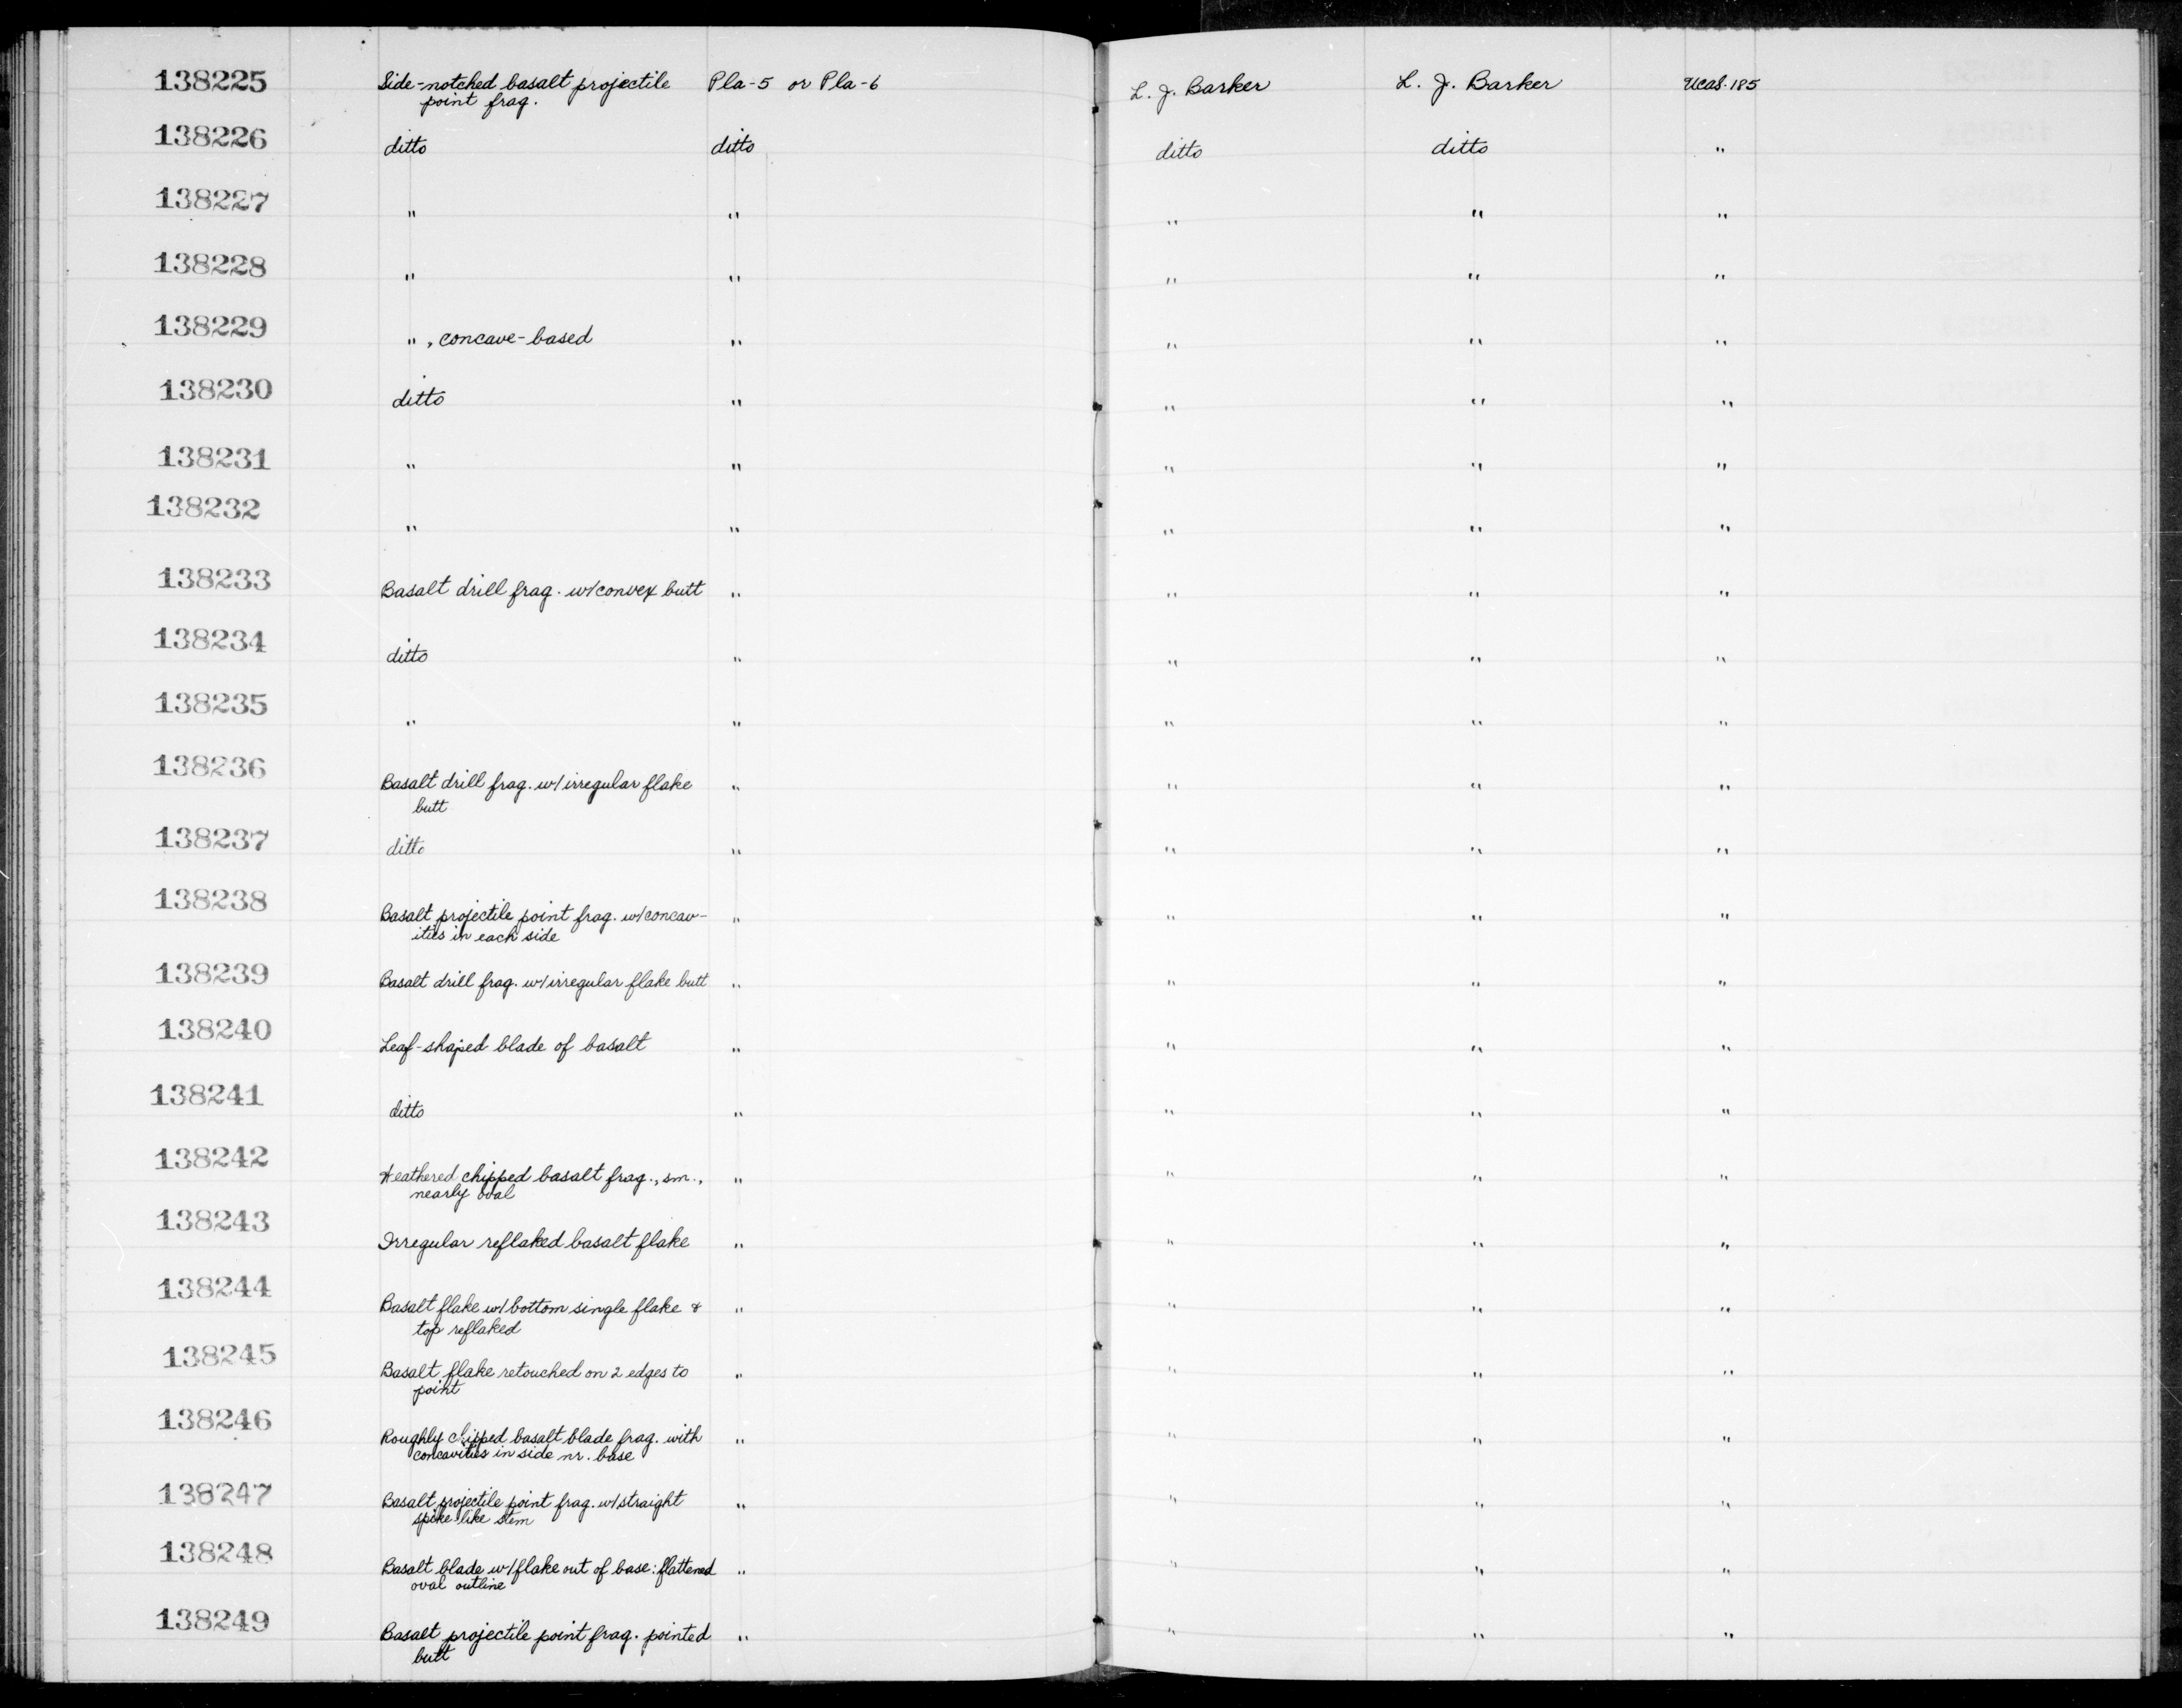 138225 Side-notched basalt projectile Pla-5 or Pla-6 L. J. Barker L. J. Barker Ucas-185
point frag.
138226 ditto ditto ditto ditto "
138227 " " " " "
138228 " " " " "
138229 ", concave-based " " " "
138230 ditto " " " "
138231 " " " " "
138232 " " " " "
138233 Basalt drill frag. w/convex butt " " " "
138234 ditto " " " "
138235 " " " " "
138236 Basalt drill frag. w/irregular flake " " " "
butt
138237 ditto " " " "
138238 Basalt projectile point frag. w/concav- " " " "
ities in each side
138239 Basalt drill frag. w/irregular flake butt " " " "
138240 Leaf-shaped blade of basalt " " " "
138241 ditto " " " "
138242 Weathered chipped basalt frag., sm., " " " "
nearly oval
138243 Irregular reflaked basalt flake " " " "
138244 Basalt flake w/bottom single flake & " " " "
top reflaked
138245 Basalt flake retouched on 2 edges to " " " "
point
138246 Roughly chipped basalt blade frag. with " " " "
concavities in side nr. base
138247 Basalt projectile point frag. w/straight " " " "
spike-like stem
138248 Basalt blade w/flake out of base: flattened " " " "
oval outline
138249 Basalt projectile point frag. pointed " " " "
butt